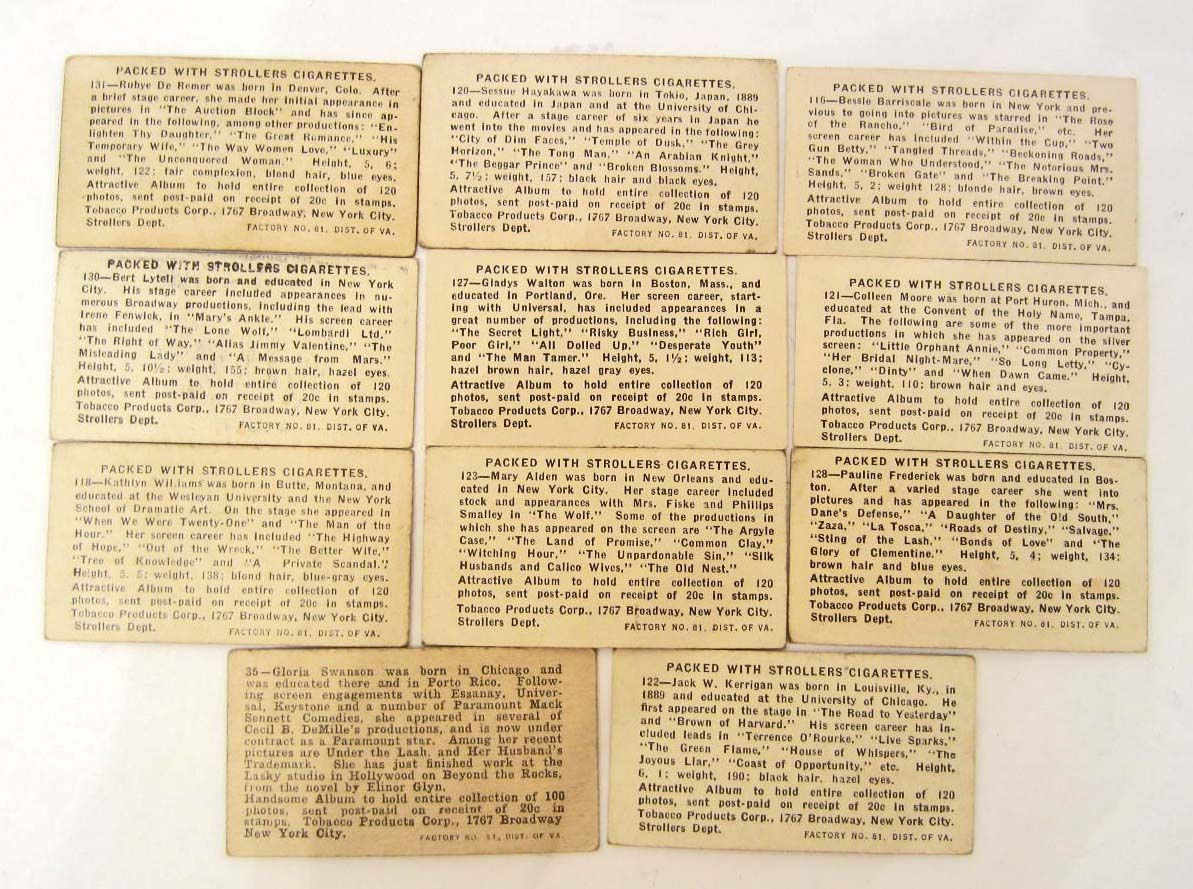 PACKED WITH STROLLERS CIGARETTES.
131—Rubye De Remer was born in Denver, Colo. After
a brief stage career, she made her initial appearance in
pictures in "The Auction Block" and has since ap-
peared in the following, among other productions: "En-
lighten Thy Daughter," "The Great Romance," "His
Temporary Wife," "The Way Women Love," "Luxury"
and "The Unconquered Woman." Height, 5, 6;
weight, 122; fair complexion, blond hair, blue eyes.
Attractive Album to hold entire collection of 120
photos, sent post-paid on receipt of 20c in stamps.
Tobacco Products Corp., 1767 Broadway, New York City.
Strollers Dept. FACTORY NO. 81. DIST. OF VA.
PACKED WITH STROLLERS CIGARETTES.
120—Sessue Hayakawa was born in Tokio, Japan, 1889
and educated in Japan and at the University of Chi-
cago. After a stage career of six years in Japan he
went into the movies and has appeared in the following:
"City of Dim Faces," "Temple of Dusk," "The Grey
Horizon," "The Tong Man," "An Arabian Knight,"
"The Beggar Prince" and "Broken Blossoms." Height,
5, 7½; weight, 157; black hair and black eyes.
Attractive Album to hold entire collection of 120
photos, sent post-paid on receipt of 20c in stamps.
Tobacco Products Corp., 1767 Broadway, New York City.
Strollers Dept. FACTORY NO. 81. DIST. OF VA.
PACKED WITH STROLLERS CIGARETTES.
116—Bessie Barriscale was born in New York and pre-
vious to going into pictures was starred in "The Rose
of the Rancho," "Bird of Paradise," etc. Her
screen career has included "Within the Cup," "Two
Gun Betty," "Tangled Threads," "Beckoning Roads,"
"The Woman Who Understood," "The Notorious Mrs.
Sands," "Broken Gate" and "The Breaking Point."
Height, 5, 2; weight 128; blonde hair, brown eyes.
Attractive Album to hold entire collection of 120
photos, sent post-paid on receipt of 20c in stamps.
Tobacco Products Corp., 1767 Broadway, New York City.
Strollers Dept. FACTORY NO. 81. DIST. OF VA.
PACKED WITH STROLLERS CIGARETTES.
130—Bert Lytell was born and educated in New York
City. His stage career included appearances in nu-
merous Broadway productions, including the lead with
Irene Fenwick, in "Mary's Ankle." His screen career
has included "The Lone Wolf," "Lombardi Ltd,"
"The Right of Way," "Alias Jimmy Valentine," "The
Misleading Lady" and "A Message from Mars."
Height, 5, 10½; weight, 155; brown hair, hazel eyes.
Attractive Album to hold entire collection of 120
photos, sent post-paid on receipt of 20c in stamps.
Tobacco Products Corp., 1767 Broadway, New York City.
Strollers Dept. FACTORY NO. 81. DIST. OF VA.
PACKED WITH STROLLERS CIGARETTES.
127—Gladys Walton was born in Boston, Mass., and
educated in Portland, Ore. Her screen career, start-
ing with Universal, has included appearances in a
great number of productions, including the following:
"The Secret Light," "Risky Business," "Rich Girl,
Poor Girl," "All Dolled Up," "Desperate Youth"
and "The Man Tamer." Height, 5, 1½; weight, 113;
hazel brown hair, hazel gray eyes.
Attractive Album to hold entire collection of 120
photos, sent post-paid on receipt of 20c in stamps.
Tobacco Products Corp., 1767 Broadway, New York City.
Strollers Dept. FACTORY NO. 81. DIST. OF VA.
PACKED WITH STROLLERS CIGARETTES.
121—Colleen Moore was born at Port Huron, Mich., and
educated at the Convent of the Holy Name, Tampa,
Fla. The following are some of the more important
productions in which she has appeared on the silver
screen: "Little Orphant Annie," "Common Property,"
"Her Bridal Night-Mare," "So Long Letty," "Cy-
clone," "Dinty" and "When Dawn Came." Height,
5, 3; weight, 110; brown hair and eyes.
Attractive Album to hold entire collection of 120
photos, sent post-paid on receipt of 20c in stamps.
Tobacco Products Corp., 1767 Broadway, New York City.
Strollers Dept. FACTORY NO. 81. DIST. OF VA.
PACKED WITH STROLLERS CIGARETTES.
118—Kathlyn Williams was born in Butte, Montana, and
educated at the Wesleyan University and the New York
School of Dramatic Art. On the stage she appeared in
"When We Were Twenty-One" and "The Man of the
Hour." Her screen career has included "The Highway
of Hope," "Out of the Wreck," "The Better Wife,"
"Tree of Knowledge" and "A Private Scandal."
Height, 5, 5; weight, 138; blond hair, blue-gray eyes.
Attractive Album to hold entire collection of 120
photos, sent post-paid on receipt of 20c in stamps.
Tobacco Products Corp., 1767 Broadway, New York City.
Strollers Dept. FACTORY NO. 81. DIST. OF VA.
PACKED WITH STROLLERS CIGARETTES.
123—Mary Alden was born in New Orleans and edu-
cated in New York City. Her stage career included
stock and appearances with Mrs. Fiske and Phillips
Smalley in "The Wolf." Some of the productions in
which she has appeared on the screen are "The Argyle
Case," "The Land of Promise," "Common Clay,"
"Witching Hour," "The Unpardonable Sin," "Silk
Husbands and Calico Wives," "The Old Nest."
Attractive Album to hold entire collection of 120
photos, sent post-paid on receipt of 20c in stamps.
Tobacco Products Corp., 1767 Broadway, New York City.
Strollers Dept. FACTORY NO. 81. DIST. OF VA.
PACKED WITH STROLLERS CIGARETTES.
128—Pauline Frederick was born and educated in Bos-
ton. After a varied stage career she went into
pictures and has appeared in the following: "Mrs.
Dane's Defense," "A Daughter of the Old South,"
"Zaza," "La Tosca," "Roads of Destiny," "Salvage,"
"Sting of the Lash," "Bonds of Love" and "The
Glory of Clementine." Height, 5, 4; weight, 134;
brown hair and blue eyes.
Attractive Album to hold entire collection of 120
photos, sent post-paid on receipt of 20c in stamps.
Tobacco Products Corp., 1767 Broadway, New York City.
Strollers Dept. FACTORY NO. 81. DIST. OF VA.
35—Gloria Swanson was born in Chicago and
was educated there and in Porto Rico. Follow-
ing screen engagements with Essanay, Univer-
sal, Keystone and a number of Paramount Mack
Sennett Comedies, she appeared in several of
Cecil B. DeMille's productions, and is now under
contract as a Paramount star. Among her recent
pictures are Under the Lash, and Her Husband's
Trademark. She has just finished work at the
Lasky studio in Hollywood on Beyond the Rocks,
from the novel by Elinor Glyn.
Handsome Album to hold entire collection of 100
photos, sent post-paid on receipt of 20c in
stamps. Tobacco Products Corp., 1767 Broadway
New York City. FACTORY NO. 81, DIST. OF VA.
PACKED WITH STROLLERS CIGARETTES.
122—Jack W. Kerrigan was born in Louisville, Ky., in
1889 and educated at the University of Chicago. He
first appeared on the stage in "The Road to Yesterday"
and "Brown of Harvard." His screen career has in-
cluded leads in "Terrence O'Rourke," "Live Sparks,"
"The Green Flame," "House of Whispers," "The
Joyous Liar," "Coast of Opportunity," etc. Height,
6, 1; weight, 190; black hair, hazel eyes.
Attractive Album to hold entire collection of 120
photos, sent post-paid on receipt of 20c in stamps.
Tobacco Products Corp., 1767 Broadway, New York City.
Strollers Dept. FACTORY NO. 81. DIST. OF VA.